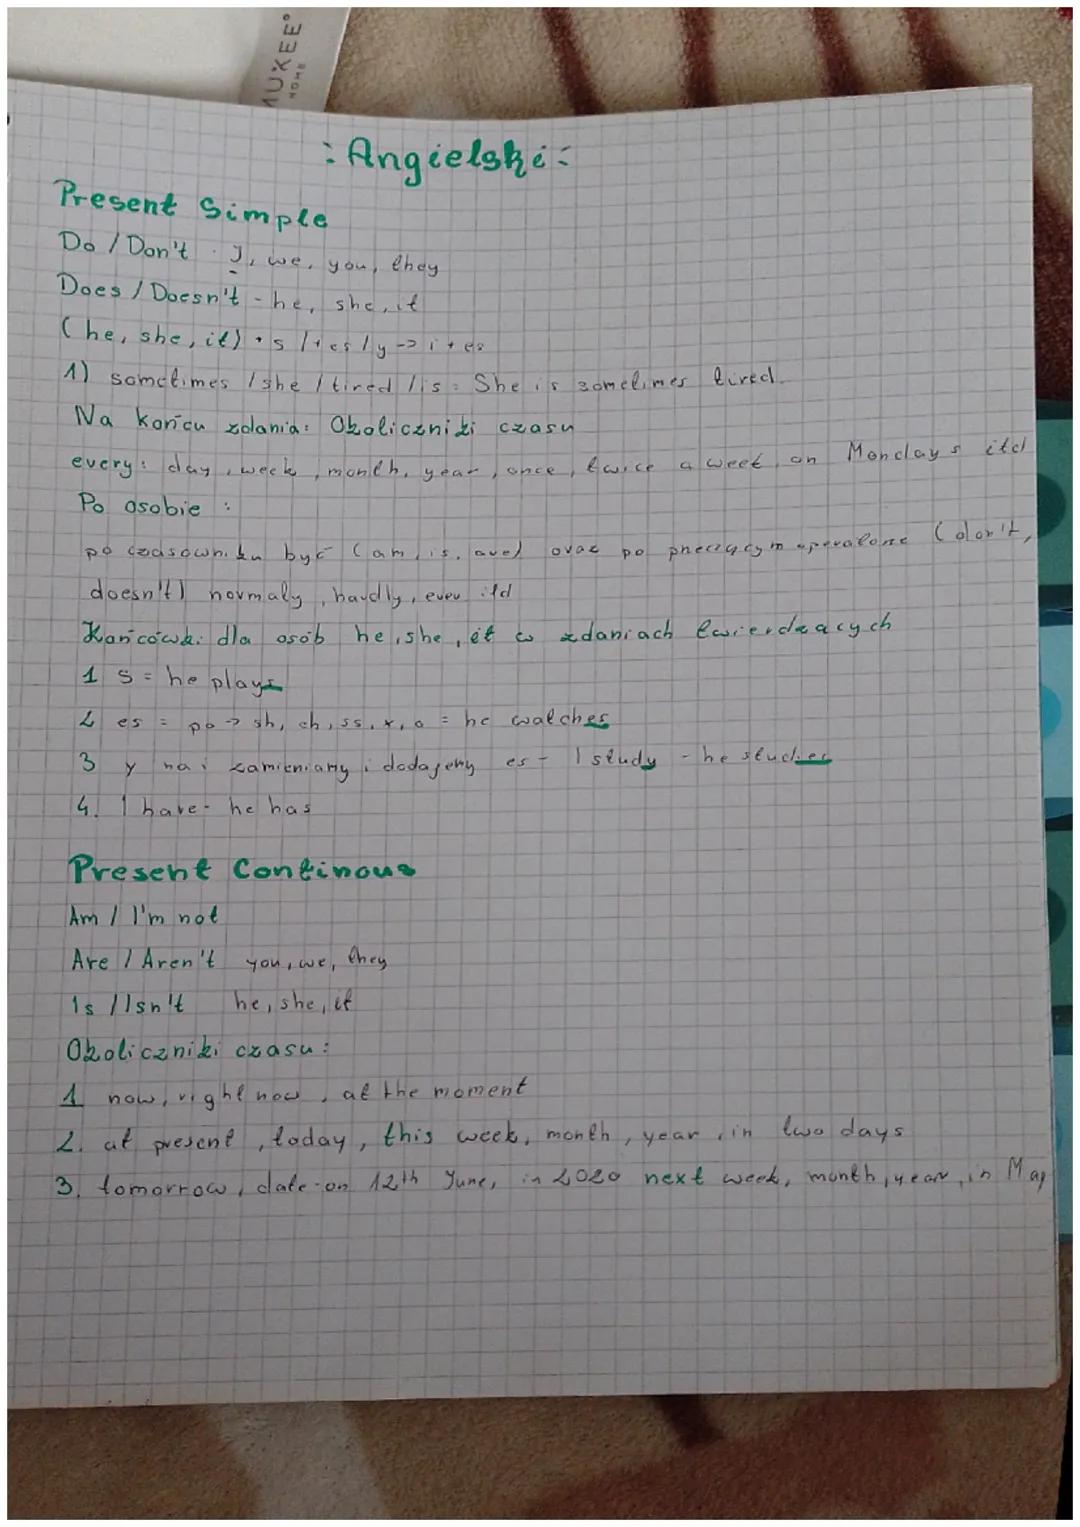 MUXEE®
HOME
: Angielski :
Present Simple
Do / Don't - I, we, you, they
Does / Doesn't - he, she, it
(he, she, it) + s / + es / y -> i + es
1) sometimes / she / tired / is = She is sometimes tired.
Na końcu zdania: Okoliczniki czasu
every: day, week, month, year, once, twice a week, on Mondays itd
Po osobie :
po czasowniku być (am, is, are) oraz po przeczącym operatorze (don't,
doesn't) normaly, hardly, ever itd
Końcówki dla osób he, she, it w zdaniach twierdzących
1 s = he plays
2 es = po -> sh, ch, ss, x, o = he watches
3 y na i zamieniamy i dodajemy es - I study - he studies
4. I have - he has
Present Continous
Am / I'm not
Are / Aren't you, we, they
Is / Isn't he, she, it
Okoliczniki czasu :
1 now, right now, at the moment
2. at present, today, this week, month, year, in two days
3. tomorrow, date - on 12th June, in 2020 next week, month, year, in May